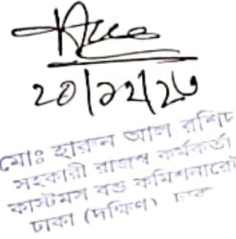 ২০/১২/২৩
মোঃ হারুন আল রশিদ
সহকারী রাজস্ব কর্মকর্তা
কাস্টমস বন্ড কমিশনারেট
ঢাকা (দক্ষিণ)